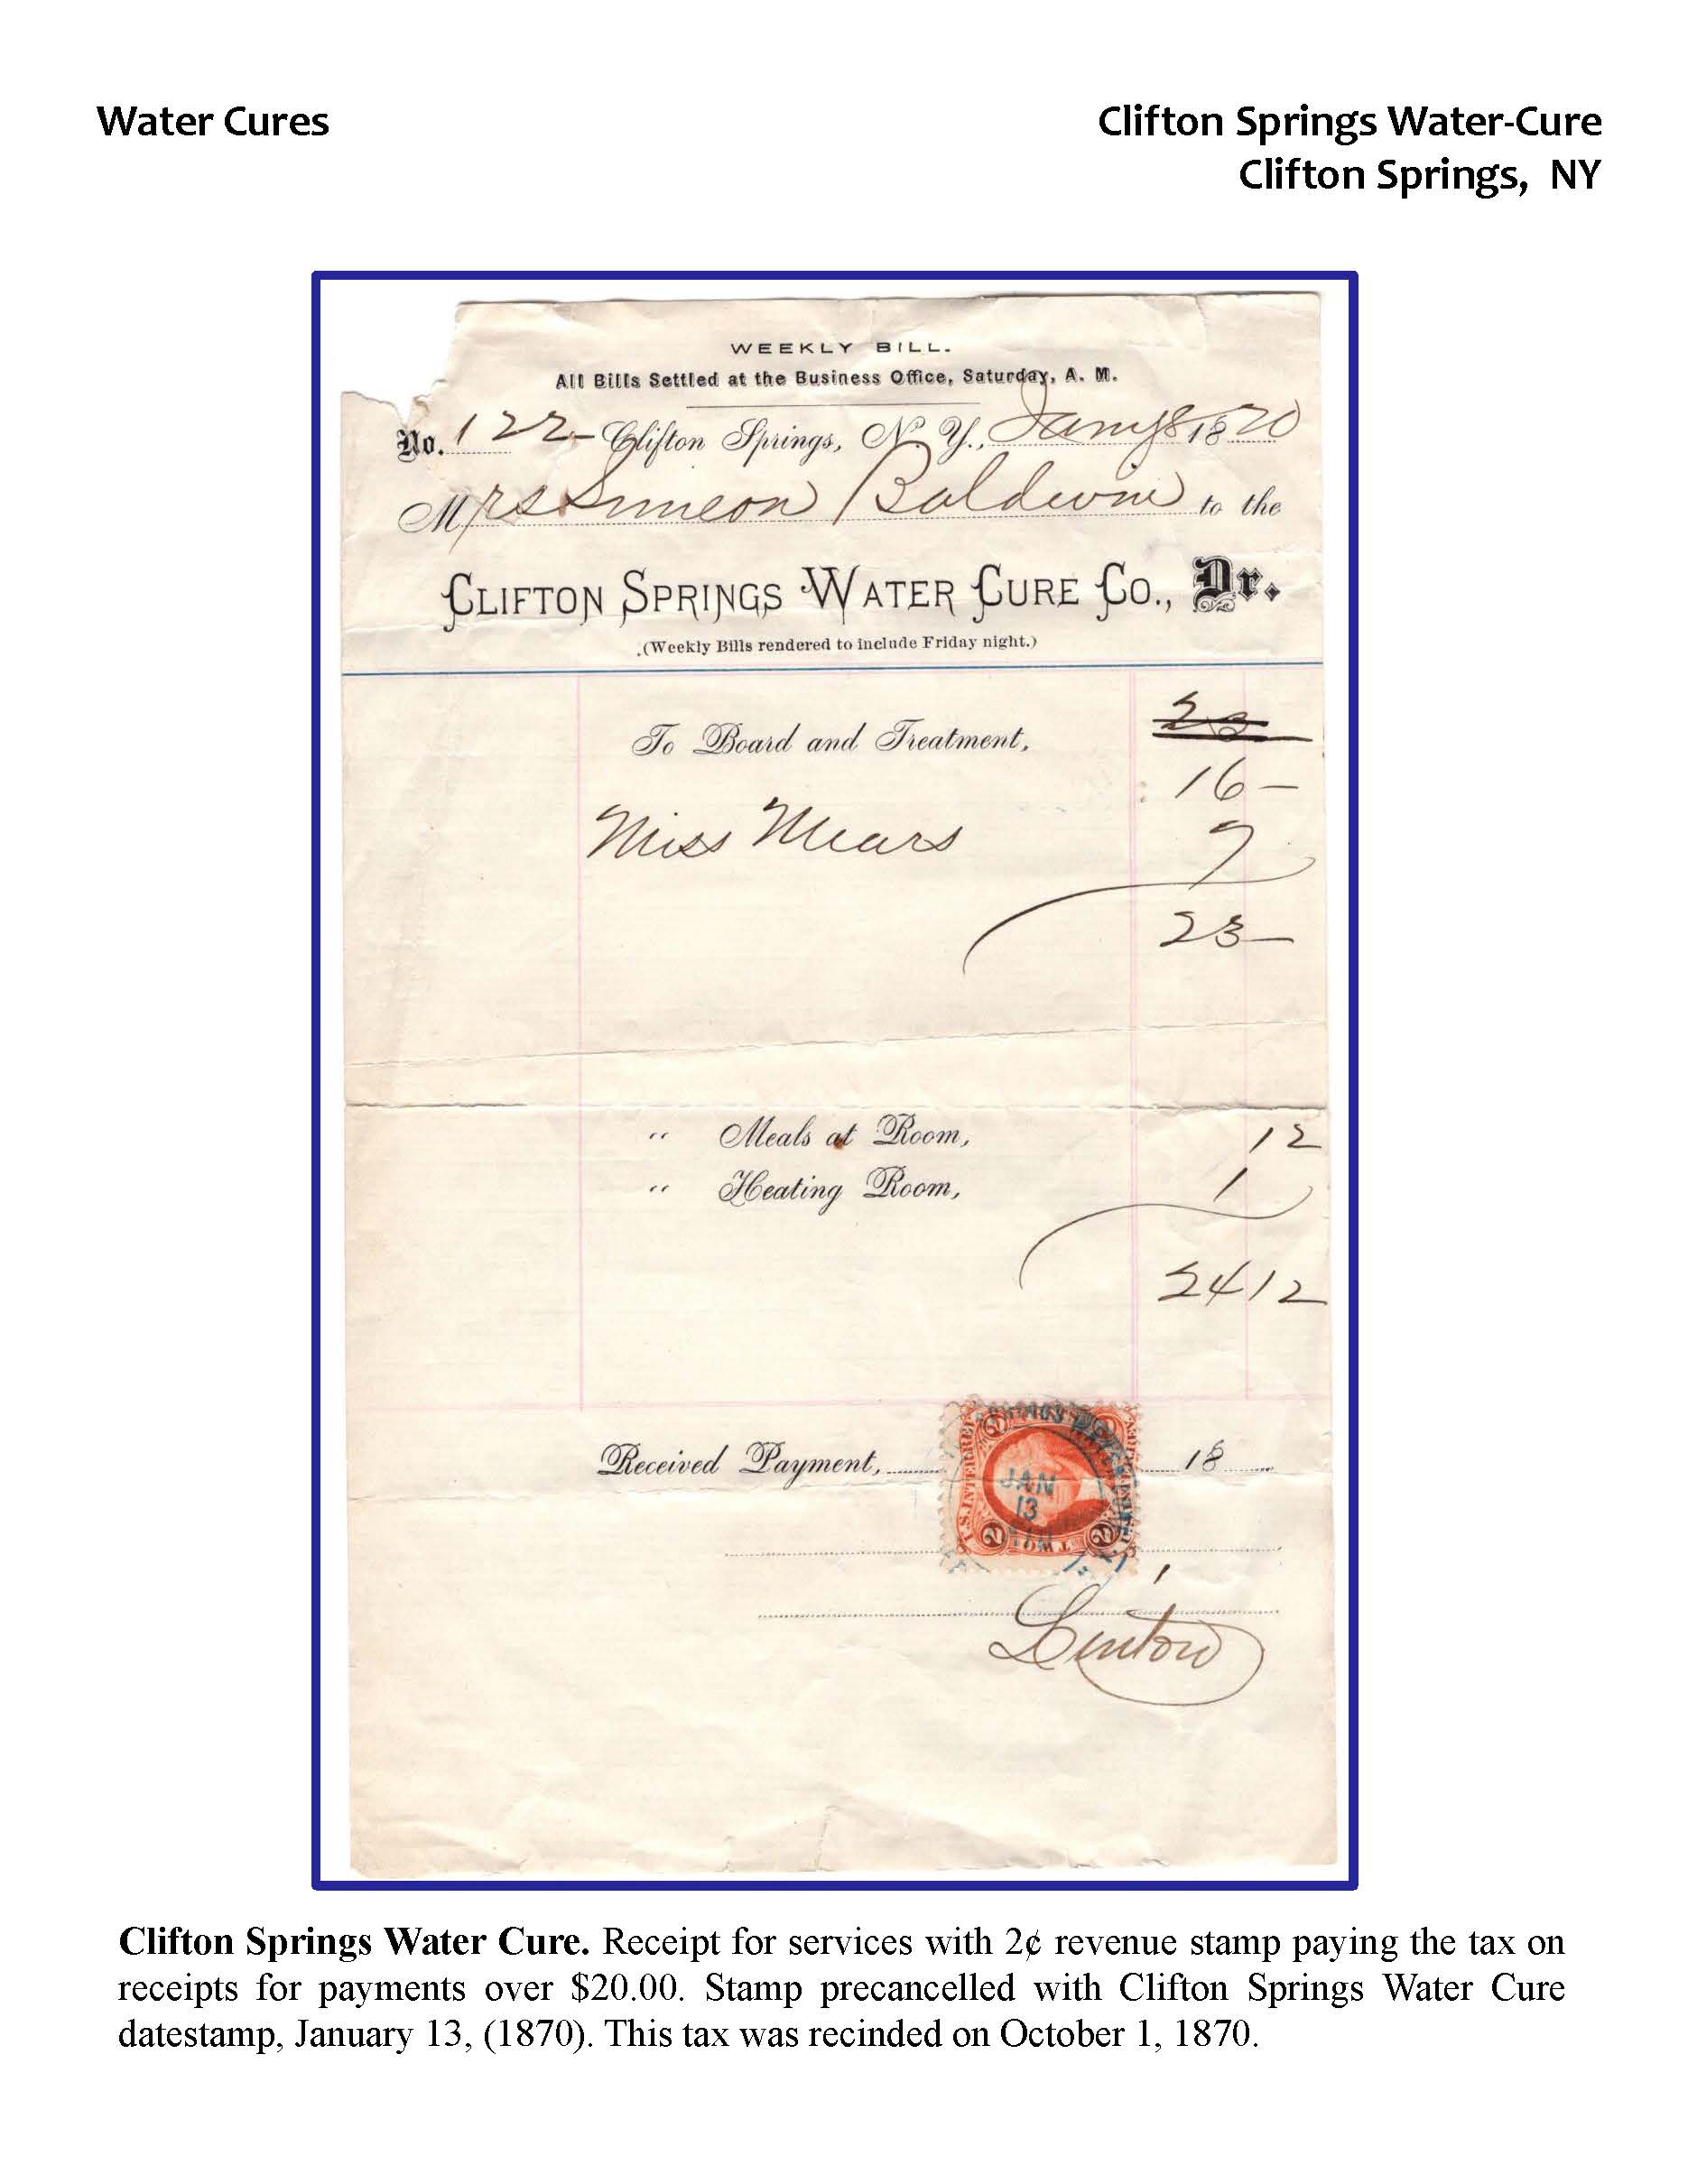 Water Cures
Clifton Springs Water-Cure
Clifton Springs, NY
WEEKLY BILL.
All Bills Settled at the Business Office, Saturday, A. M.
No. 122- Clifton Springs, N. Y., Jany 8 1870
Mrs Simeon Baldwin to the
CLIFTON SPRINGS WATER CURE CO., Dr.
(Weekly Bills rendered to include Friday night.)
To Board and Treatment, 23
16-
Miss Mears 7
23-
" Meals at Room, 12
" Heating Room, 1
24 12
Received Payment, 18
U.S. INTER. REV.
JAN
13
2 TWO 2
Linton
Clifton Springs Water Cure. Receipt for services with 2¢ revenue stamp paying the tax on
receipts for payments over $20.00. Stamp precancelled with Clifton Springs Water Cure
datestamp, January 13, (1870). This tax was recinded on October 1, 1870.